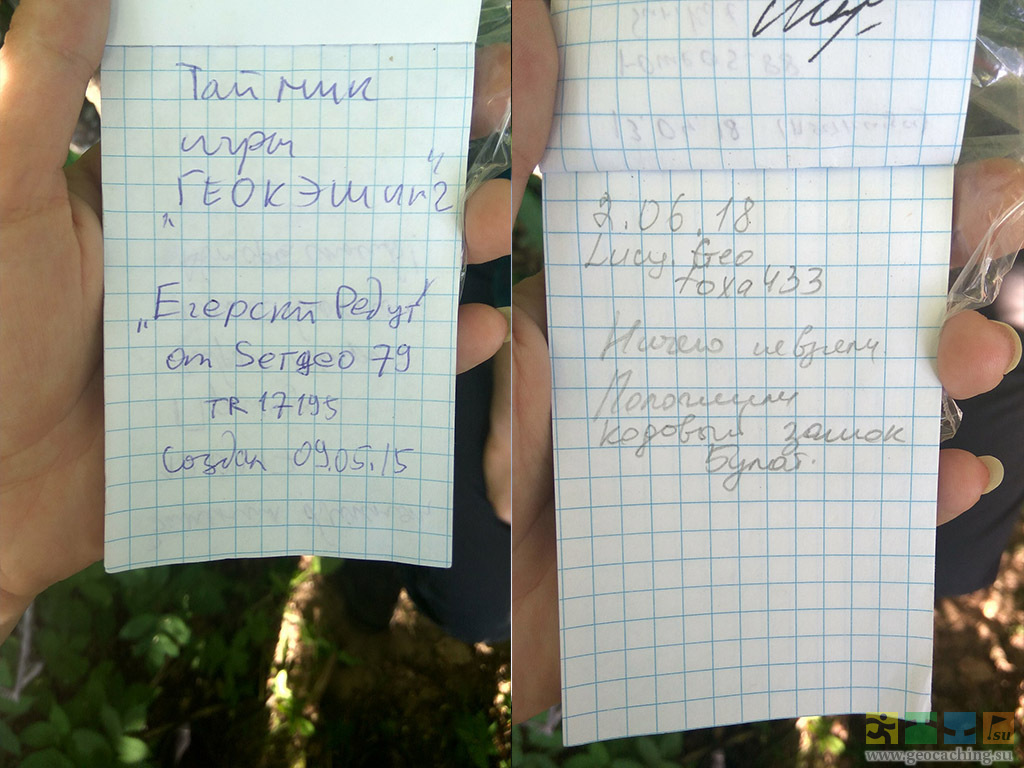 Тайник
игры
„ГЕОКЭШИНГ“
„Егерский Редут“
от Sergeo 79
TR 17195
Создан 09.05.15
2.06.18
Lucy Geo
toxa433
Ничего не взяли
Положили
кодовый замок
Булат.
.su
www.geocaching.su